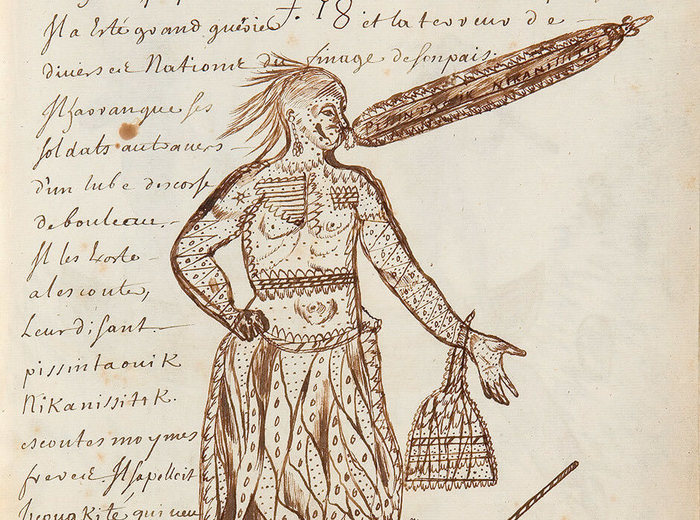 f. 18
Il a Esté grand guérie et la terreur de
diverses Nations du finage de son pais.
Il harangue ses
soldats autravers
d'un tube descorse
de bouleau.
Il les Exorte
a lescouter,
Leur disant
pissintaouik
Nikanissitik.
escoutes moy mes
freres. Il sapelloit
PISINTAOUIK NIKANISSITIK